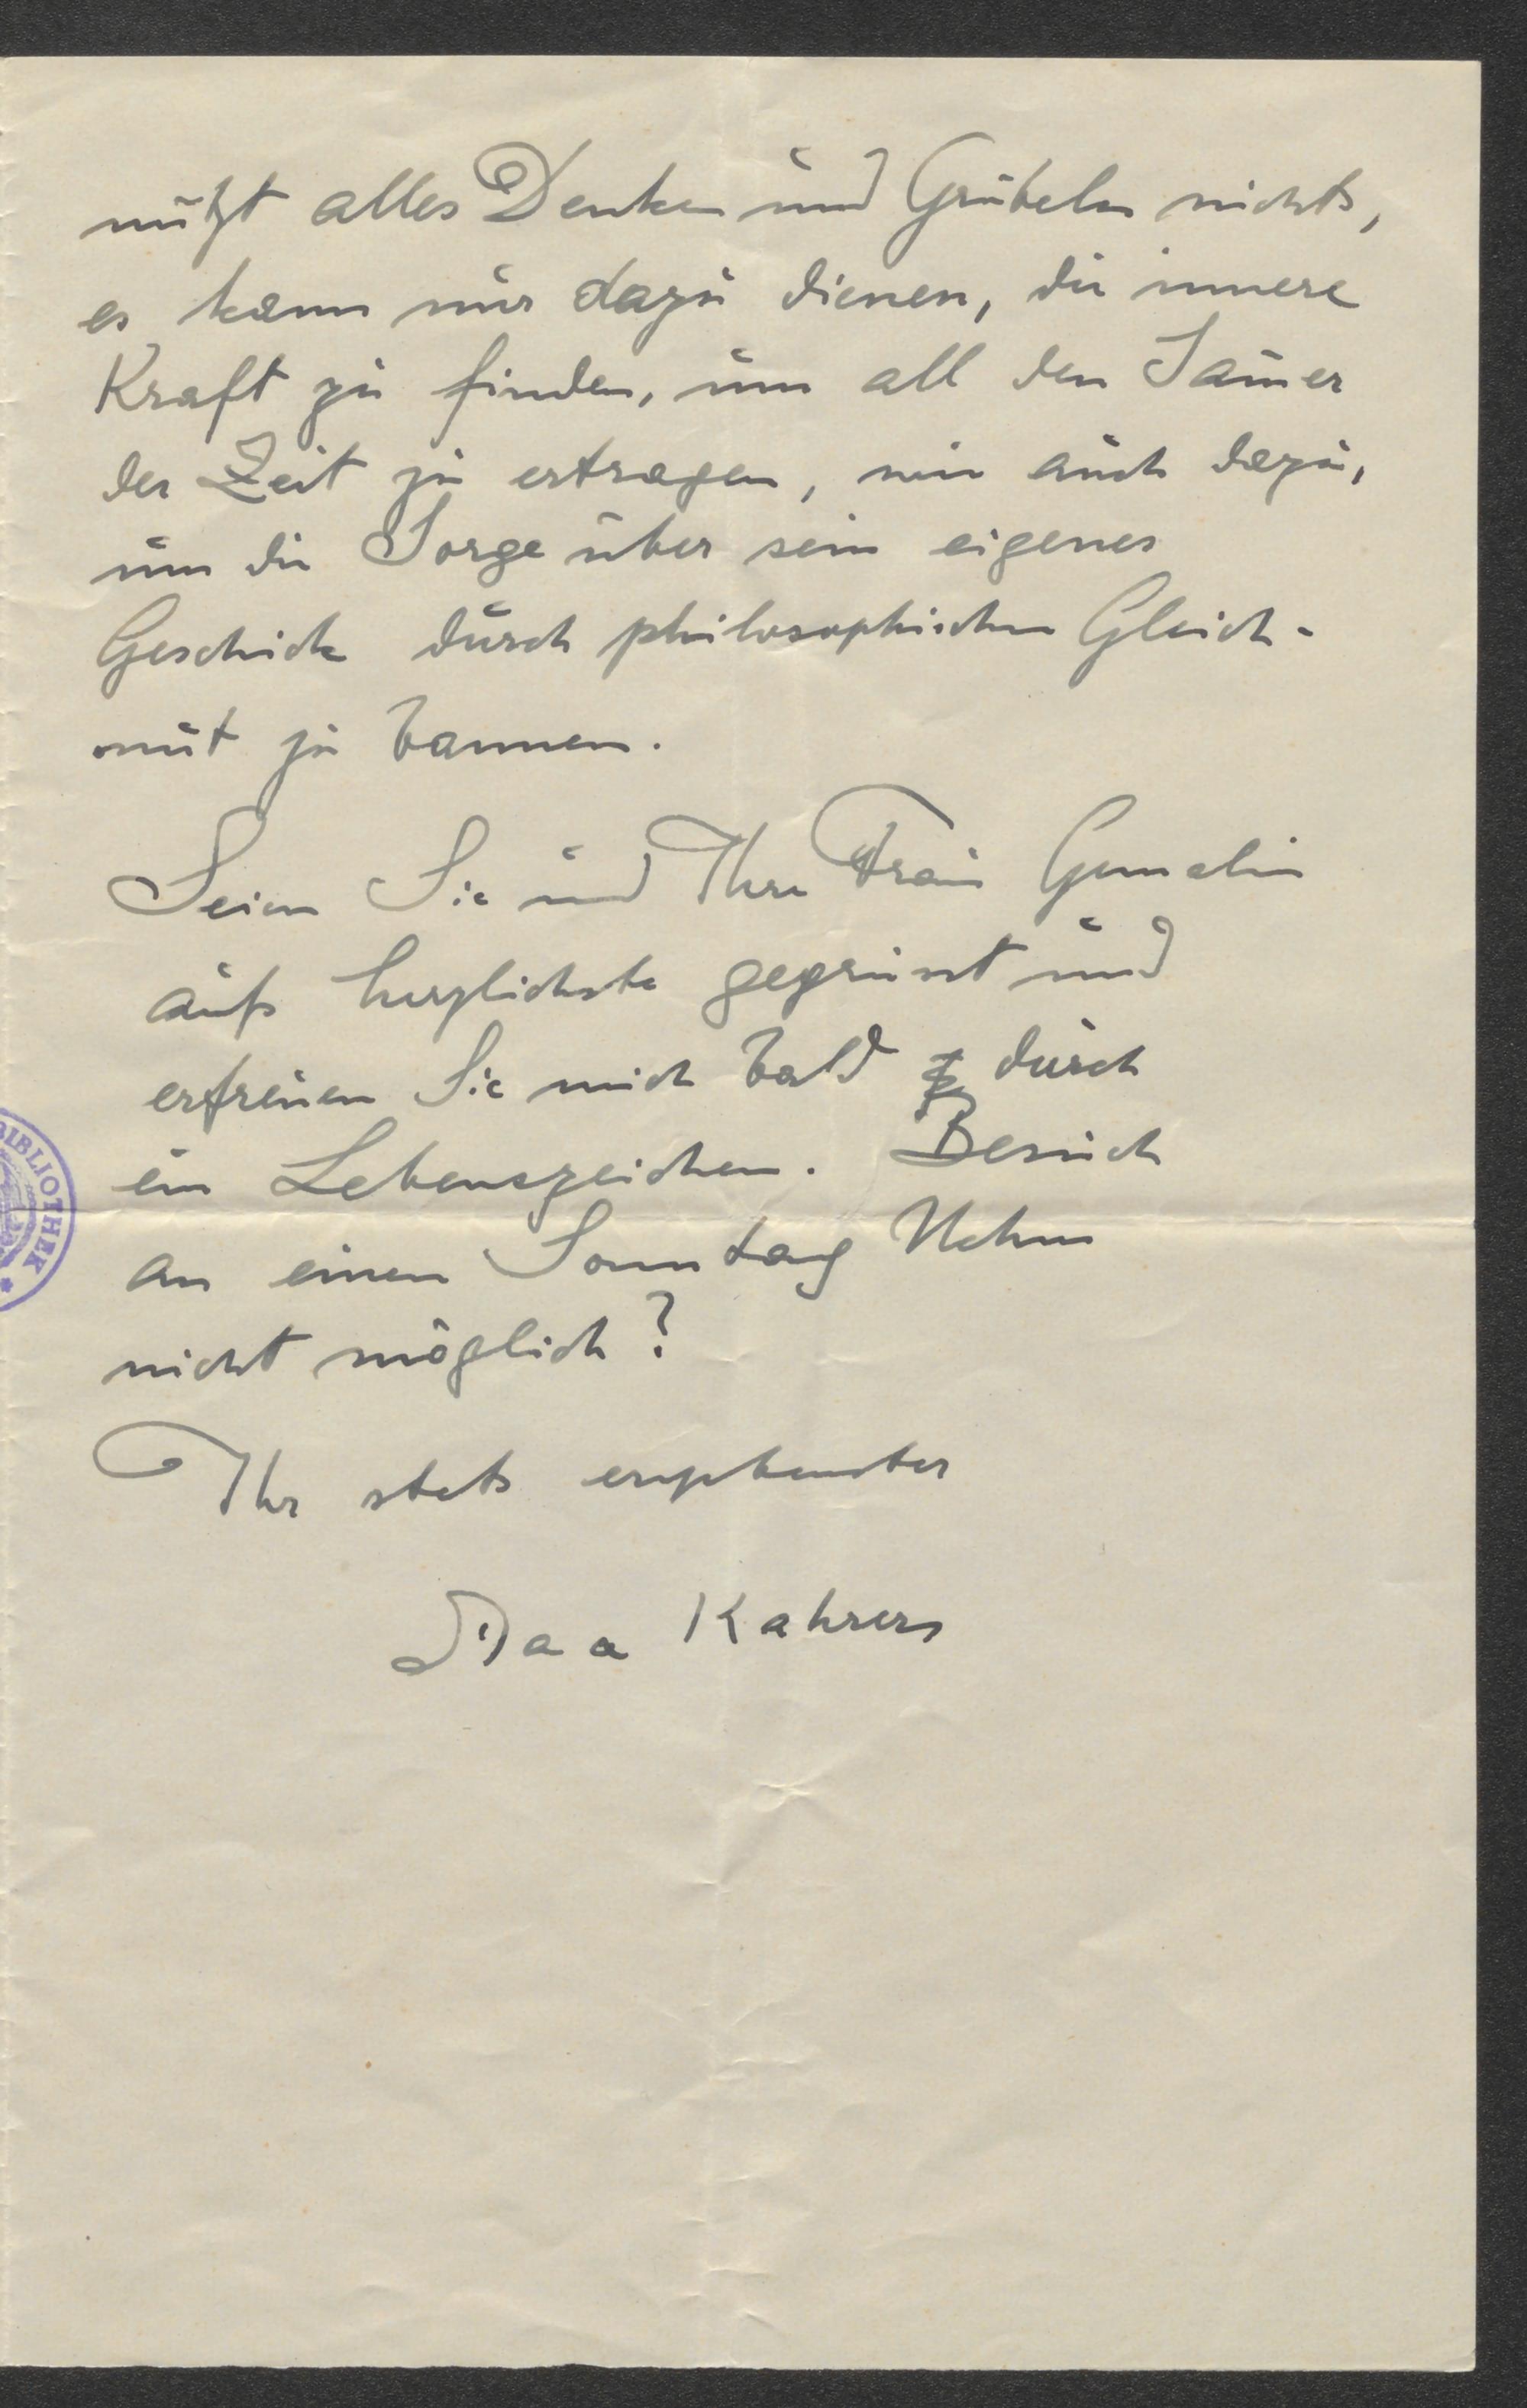 nützt alles Denken und Grübeln nichts,
es kann nur dazu dienen, die innere
Kraft zu finden, um all den Jam̄er
der Zeit zu ertragen, wie auch dazu,
um die Sorge über sein eigenes
Geschick durch philosophischen Gleich-
mut zu bannen.
Seien Sie und Ihre Frau Gemalin
aufs herzlichste gegrüsst und
erfreuen Sie mich bald durch
ein Lebenszeichen. Besuch
an einem Sonntag Nchm
nicht möglich?
Ihr stets ergebenster
Kahrers
BIBLIOTHEK